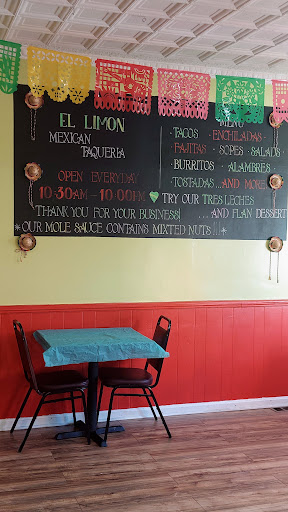 EL LIMON
MEXICAN
TAQUERIA
OPEN EVERYDAY
10:30AM - 10:00PM
THANK YOU FOR YOUR BUSINESS!
*OUR MOLE SAUCE CONTAINS MIXTED NUTS!!*
MENU
· TACOS · ENCHILADAS ·
FAJITAS · SOPES · SALADS ·
· BURRITOS · ALAMBRES ·
· TOSTADAS ...AND MORE
TRY OUR TRES LECHES
...AND FLAN DESSERT